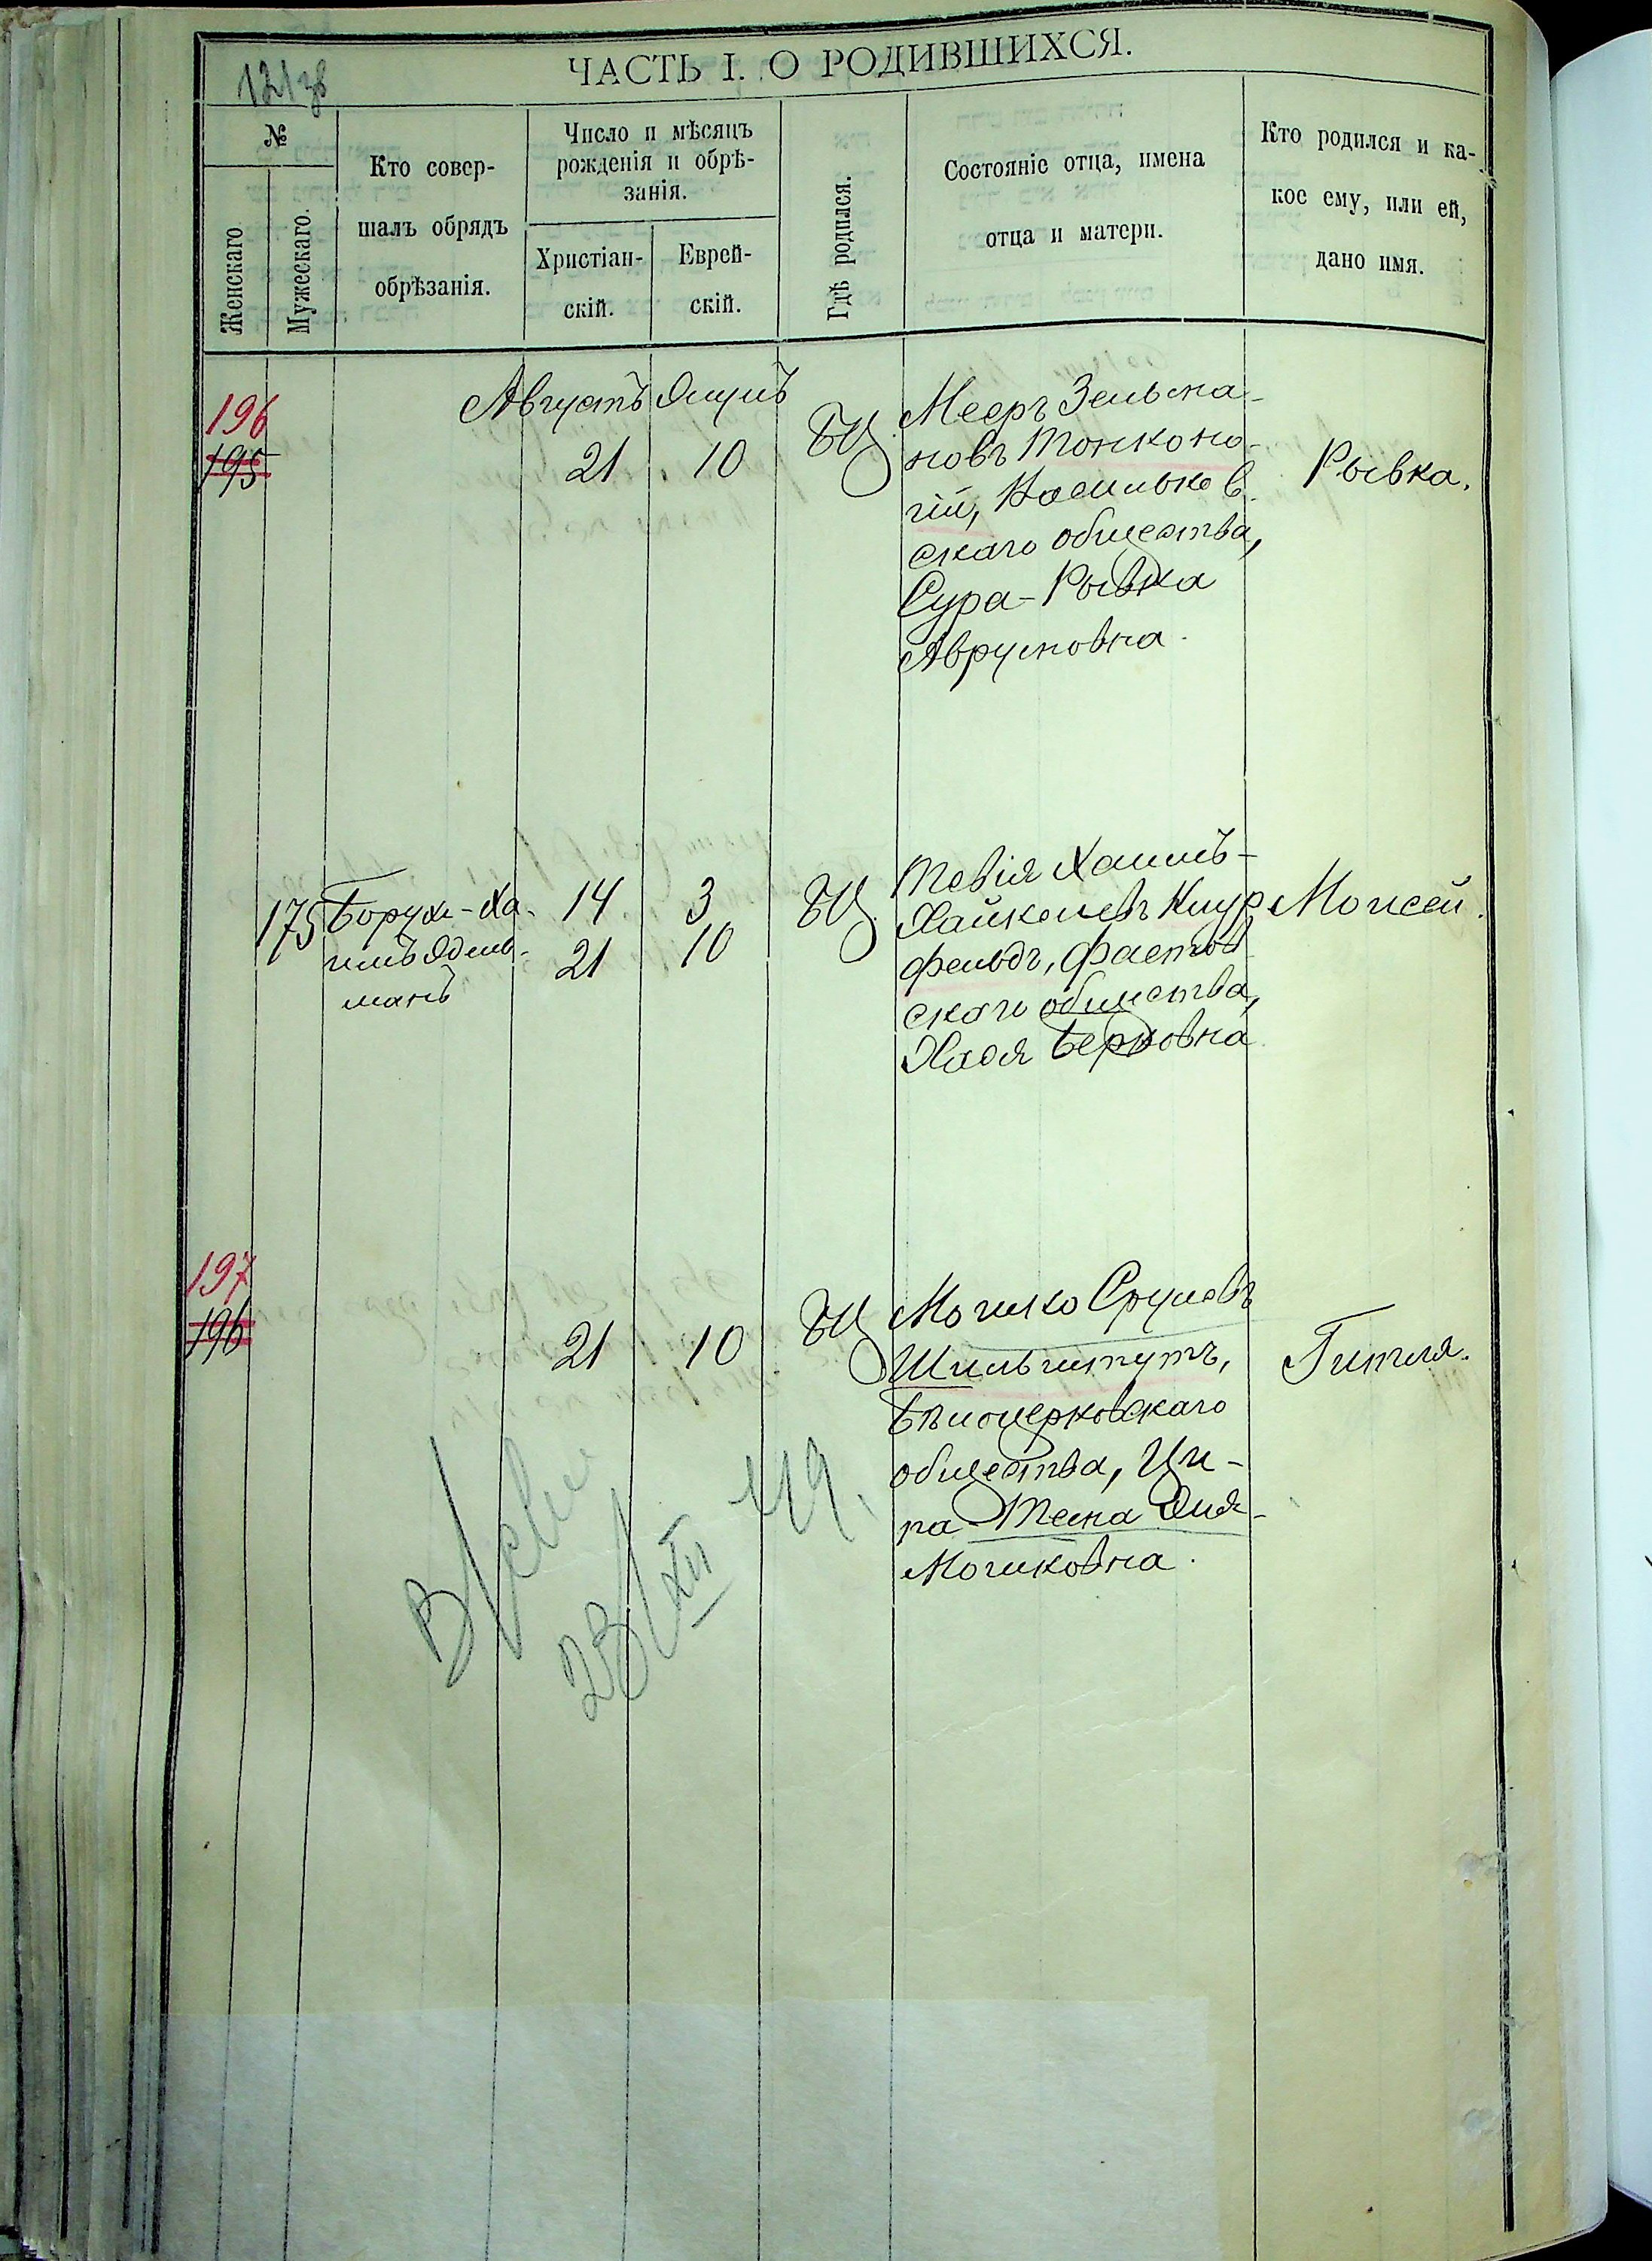 121 зв
ЧАСТЬ I. О РОДИВШИХСЯ.
№
Женскаго
Мужескаго.
Кто совер-
шалъ обрядъ
обрѣзанія.
Число и мѣсяцъ
рожденія и обрѣ-
занія.
Христіан-
скій.
Еврей-
скій.
Гдѣ родился.
Состояніе отца, имена
отца и матери.
Кто родился и ка-
кое ему, или ей,
дано имя.
Августъ Элулъ
196
195
21
10
БЦ
Мееръ Зельма-
новъ Тонконо-
гій, Васильков
скаго общества,
Сура-Рывка
Аврумовна.
Рывка.
175
Борухъ-Ха-
имъ Эдель-
манъ
14
21
3
10
БЦ.
Товія Хаимъ-
Хайкелевъ
фельдъ, Фастов
скаго общества,
Хася Берковна
Моисей.
197
196
21
10
БЦ
Мошко Сруловъ
Шильштутъ,
Бѣлоцерковскаго
общества, Ци-
па-Тема Эля-
Мошковна.
Гитля.
23/XII 49.